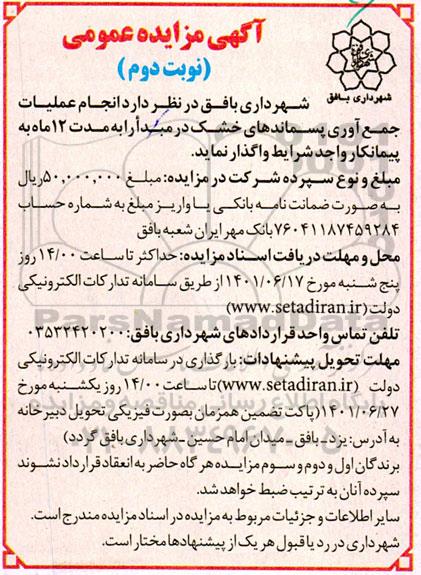 آگهی مزایده عمومی
(نوبت دوم)
شهرداری بافق
شهرداری بافق در نظر دارد انجام عملیات
جمع آوری پسماندهای خشک در مبدأ را به مدت ۱۲ ماه به
پیمانکار واجد شرایط واگذار نماید.
مبلغ و نوع سپرده شرکت در مزایده: مبلغ ۵۰,۰۰۰,۰۰۰ ریال
به صورت ضمانت نامه بانکی یا واریز مبلغ به شماره حساب
۷۶۰۴۱۱۸۷۴۵۹۲۸۴ بانک مهر ایران شعبه بافق
محل و مهلت دریافت اسناد مزایده: حداکثر تا ساعت ۱۴/۰۰ روز
پنج شنبه مورخ ۱۴۰۱/۰۶/۱۷ از طریق سامانه تدارکات الکترونیکی
دولت (www.setadiran.ir)
تلفن تماس واحد قراردادهای شهرداری بافق: ۰۳۵۳۲۴۲۰۲۰۰
مهلت تحویل پیشنهادات: بارگذاری در سامانه تدارکات الکترونیکی
دولت (www.setadiran.ir) تا ساعت ۱۴/۰۰ روز یکشنبه مورخ
۱۴۰۱/۰۶/۲۷ (پاکت تضمین همزمان بصورت فیزیکی تحویل دبیرخانه
به آدرس: یزد ـ بافق ـ میدان امام حسین ـ شهرداری بافق گردد)
برندگان اول و دوم و سوم مزایده هر گاه حاضر به انعقاد قرارداد نشوند
سپرده آنان به ترتیب ضبط خواهد شد.
سایر اطلاعات و جزئیات مربوط به مزایده در اسناد مزایده مندرج است.
شهرداری در رد یا قبول هر یک از پیشنهادها مختار است.
ParsNamadData
پایگاه اطلاع رسانی مناقصه و مزایده
۰۲۱-۸۸۳۴۹۶۷۰-۵